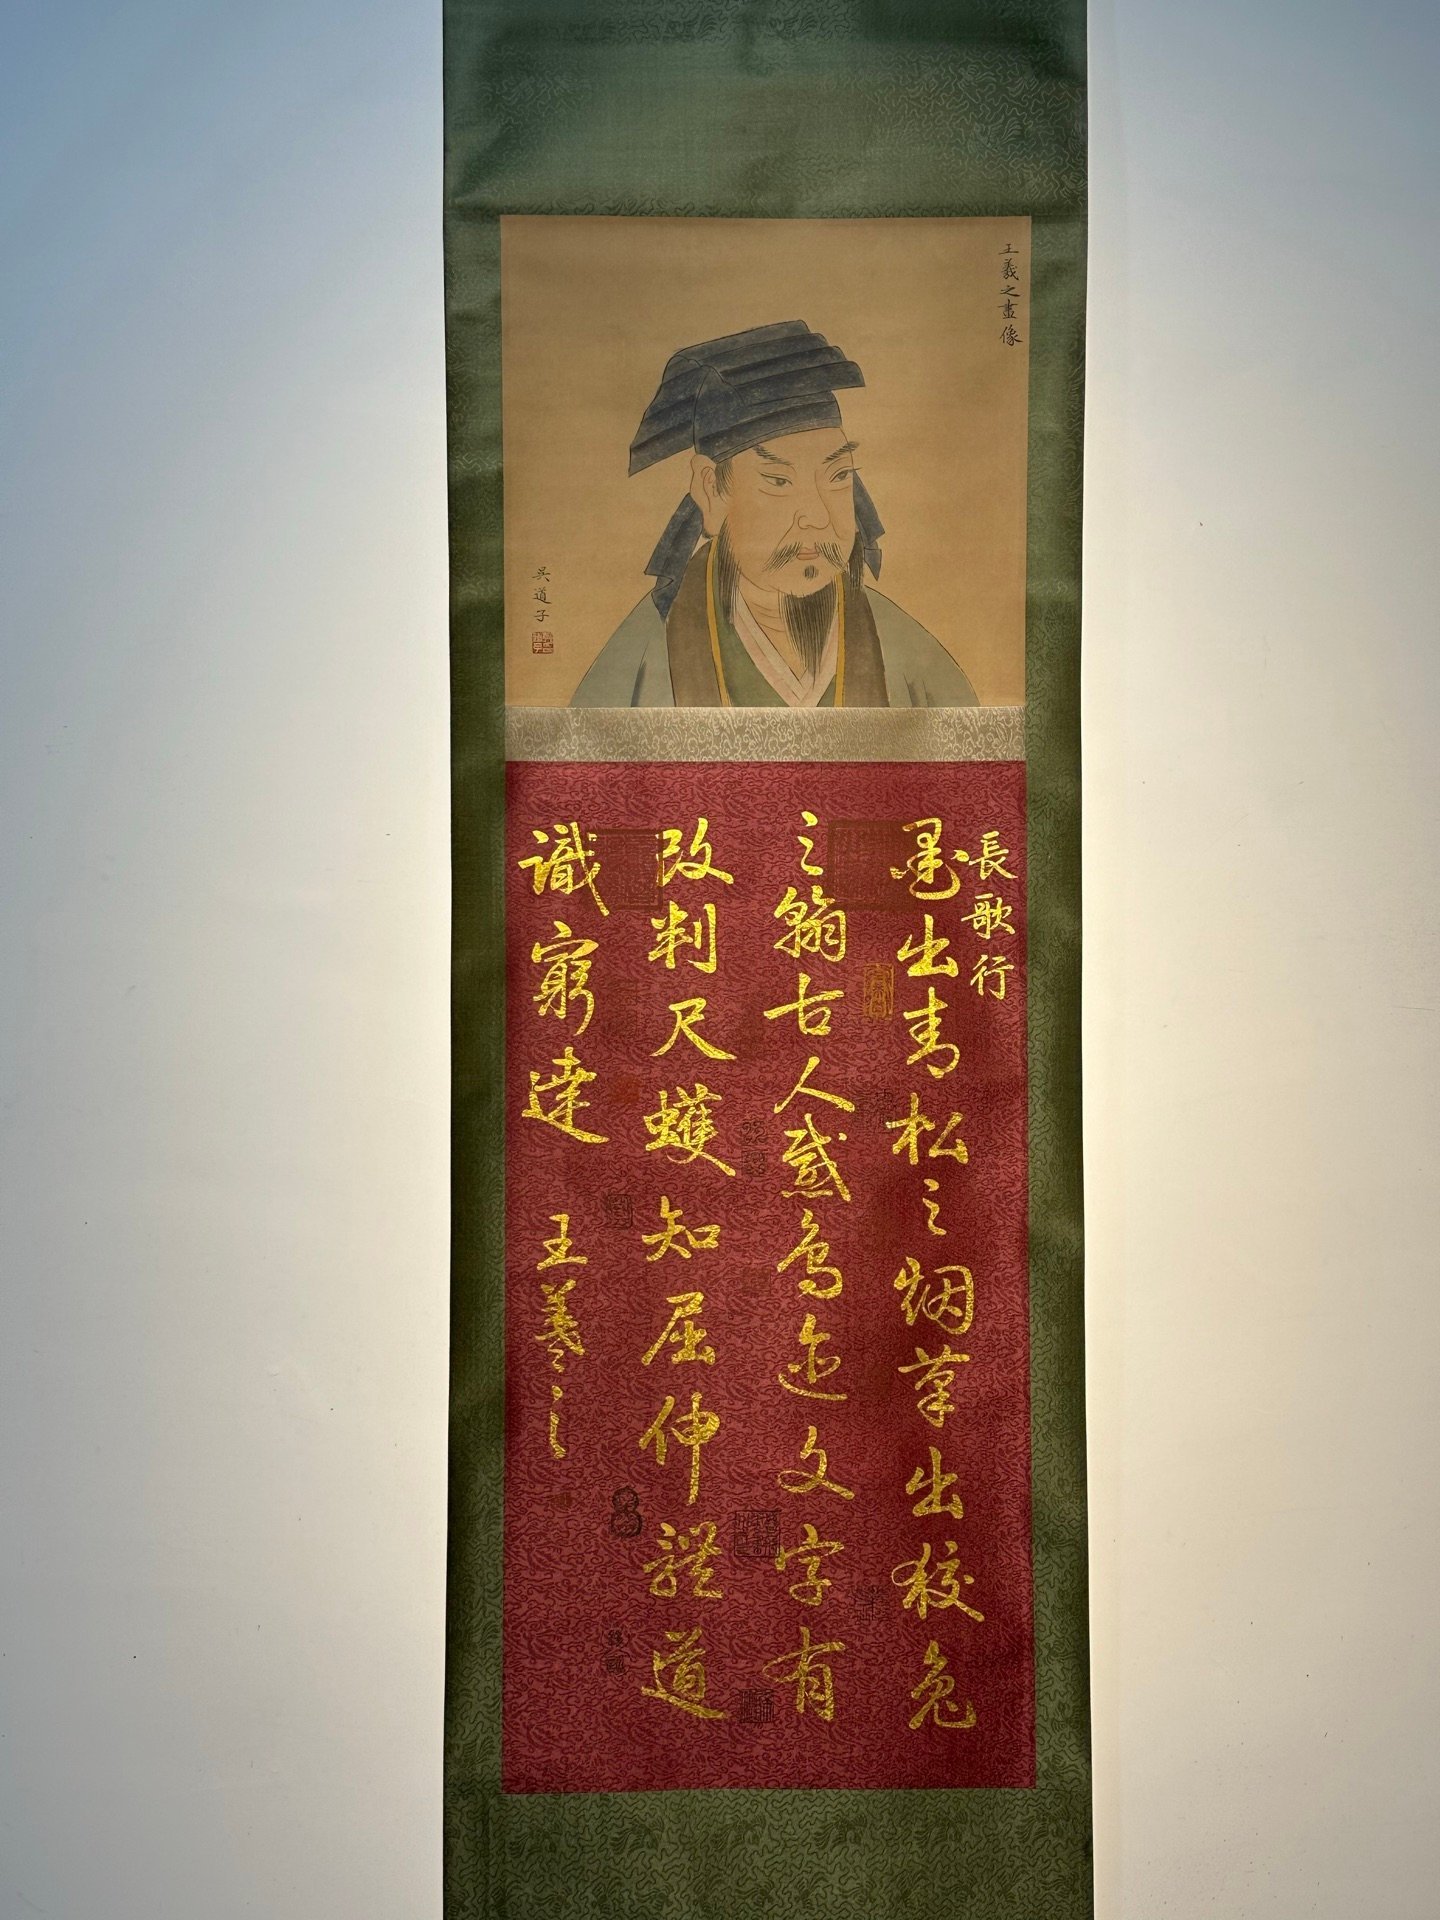 王羲之畫像
吳道子
長歌行
墨出青松之烟筆出狡兔
之翰古人感鳥迹文字有
改判尺蠖知屈伸體道
識窮達
王羲之